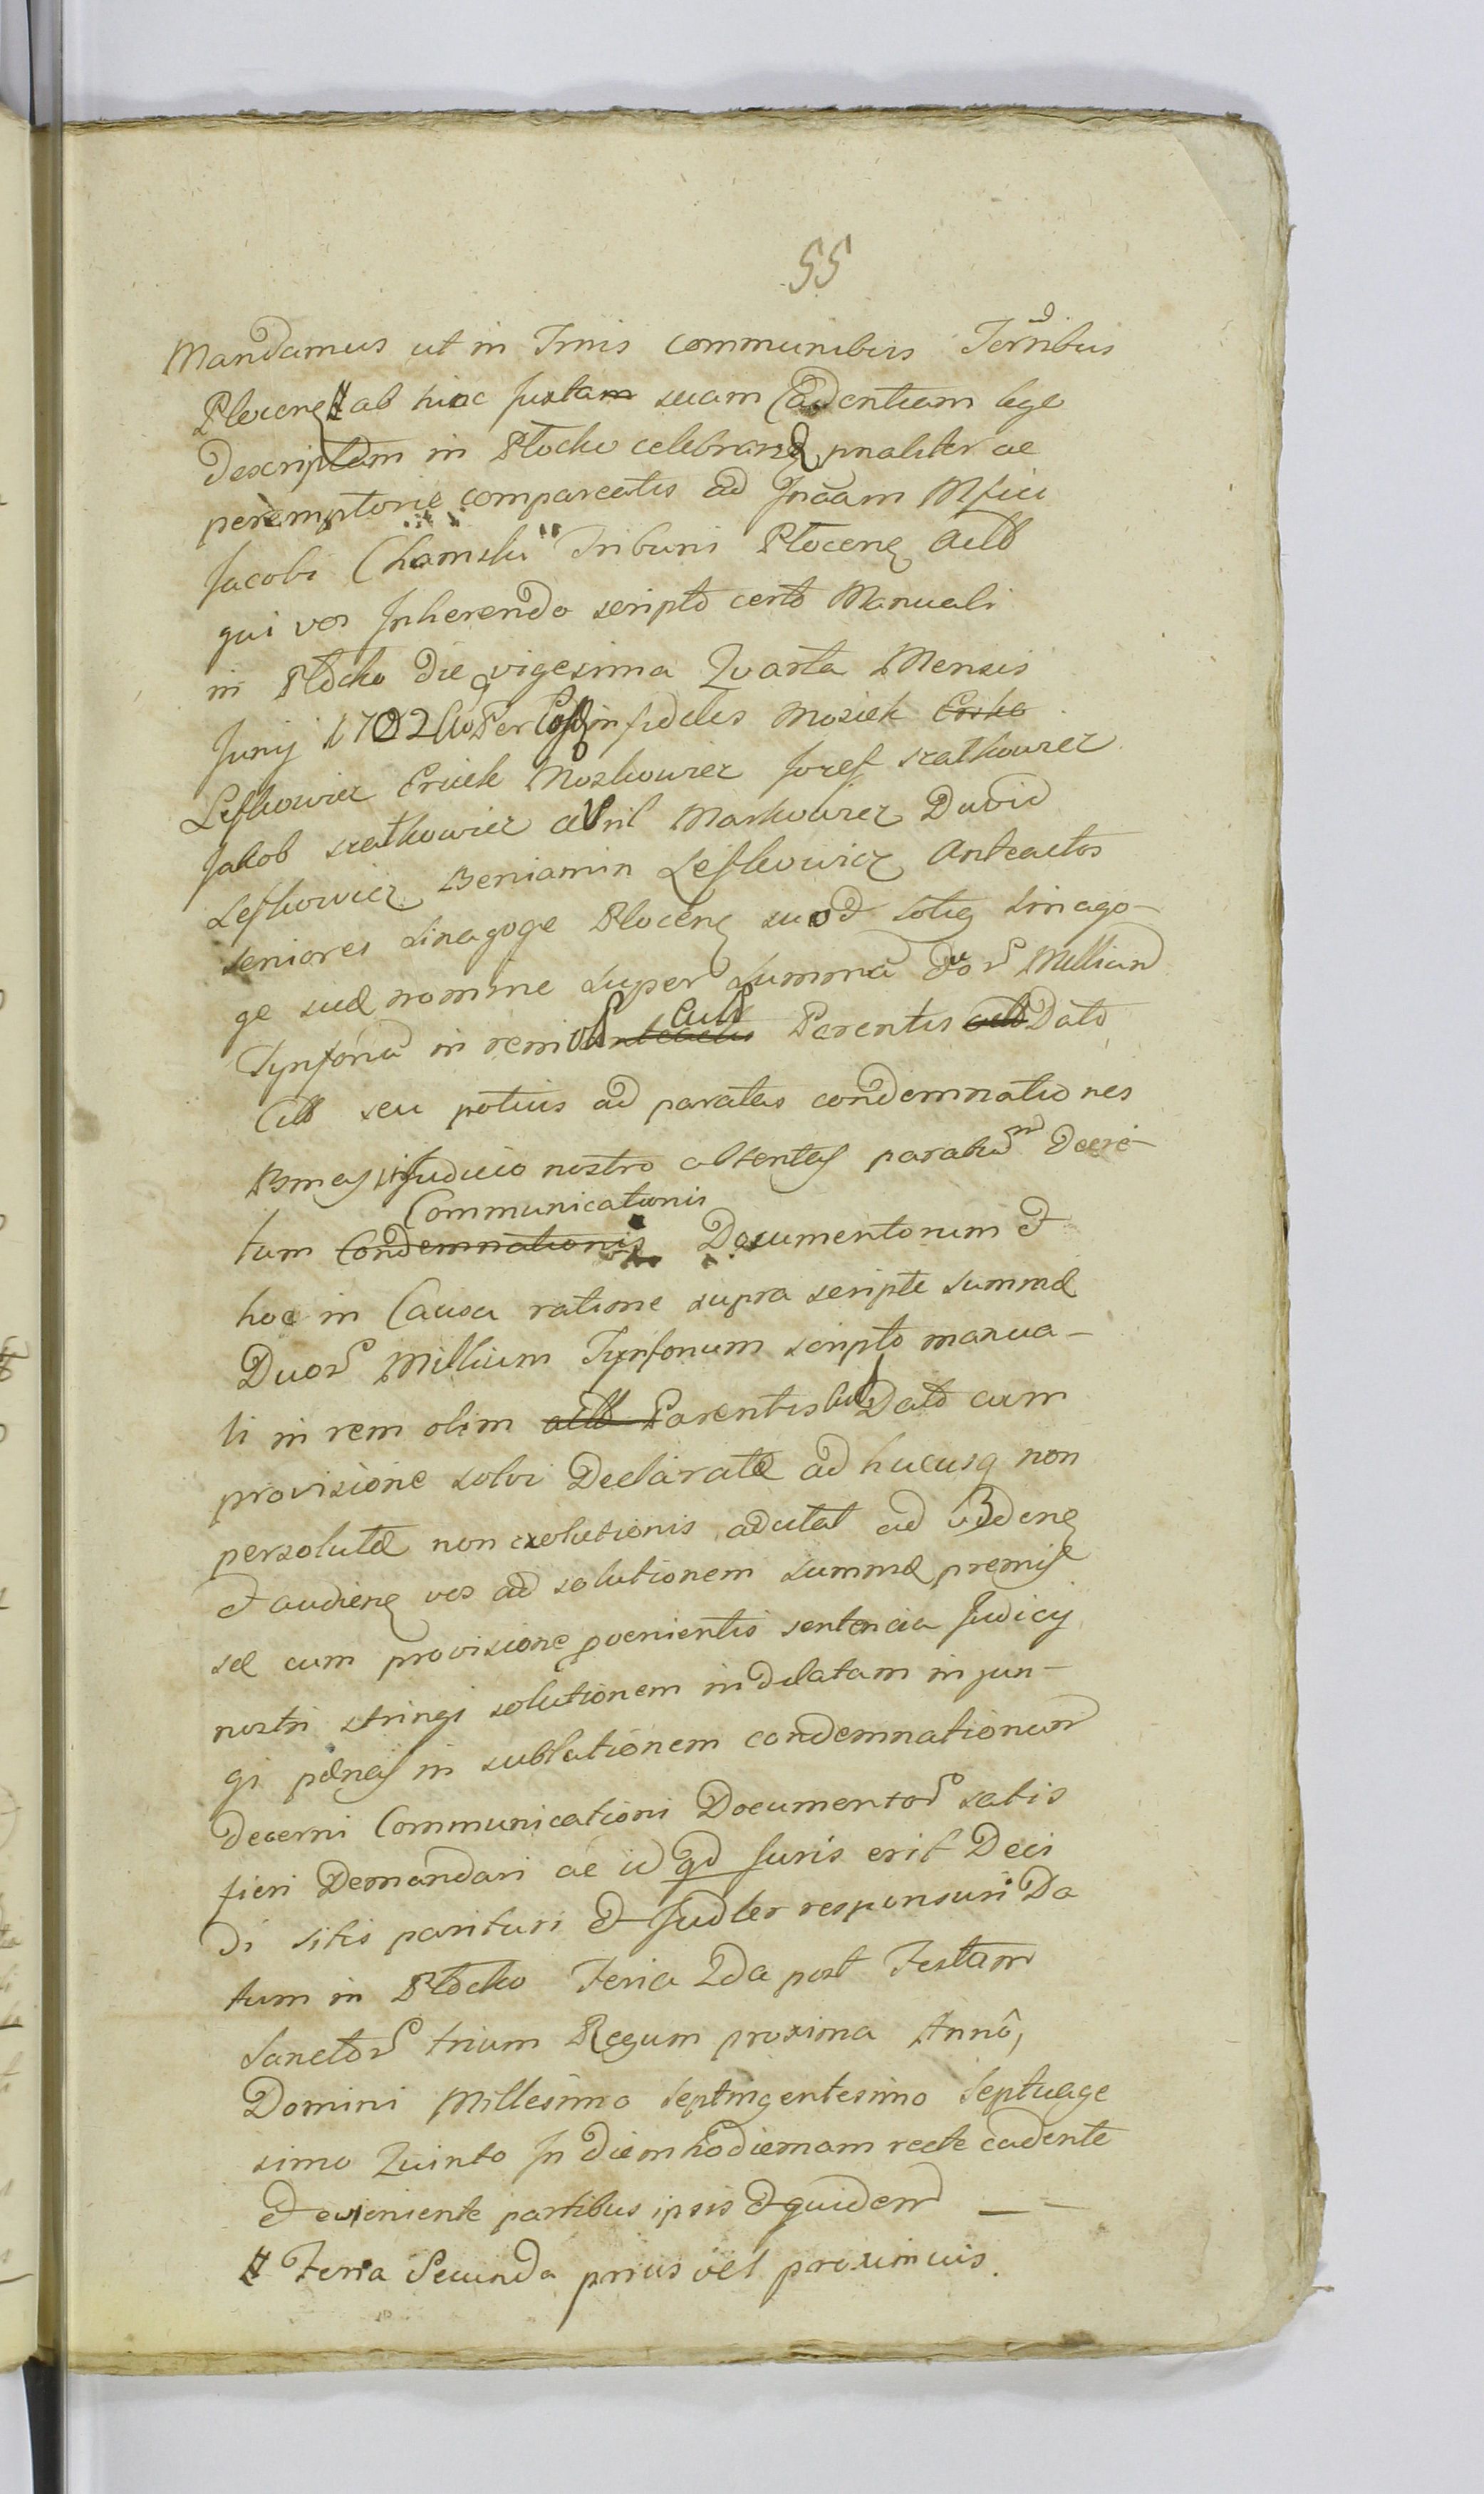 55
Mandamus ut in Tmis communibus Terribus
Plocen # ab hinc juxtam suam Cadentiam lege
descriptam in Płocko celebrand pnaliter ac
peremptorie compareatis ad Jnãam Mfici
Jacobi Chamski Tribuni Płocen Actb
qui vos Jnherendo scripto certo Manuali
in Płocko die vigesima Qvarta Mensis
Junij 1702 Per infideles Mosiek Erska
Leskowicz Ersiek Moszkowicz Josef szatkowicz
Jakob szatkowicz Markowicz David
Leszkowicz Beniamin Leszkowicz Anteactos
seniores sinagoge Plocen suo et totig sinago-
ge suæ nomine super summa duor Millium
Tynfonũ in rem Actb Parentis actb Dato
Citt seu potius ad paratas condemnationes
Bmas in Judicio nostro absentes paratum Decre-
Communicationis
tum Condemnationis Documentorum et
hoc in Causa ratione supra scripte summæ
Duor Millium Tynfonum scripto manua-
li in rem olim actb Parentis act Dato cum
provisione solvi Declaratæ ad hucusq non
persolutæ non exolutionis adcitat ad Vdden
et audien vos ad solutionem summæ premis
sæ cum provisione pvenientis sentencia Judicij
nostri stringi solutionem indilatam injun-
gi pænas in sublationem condemnationum
decerni Communicationi Documentor satis
fieri Demandari ac id qd Juris erit Deci
di sitis parituri et Judler responsuri Da
tum in Płocko Feria 2da post Festam
Sanctor trium Regum proxima Anno,
Domini Millesimo Septingentesimo Septuage
simo Quinto In diem hodiernam recte cadente
et eveniente partibus ipsis et quidem —
# Feria Secunda prius vel proximius.